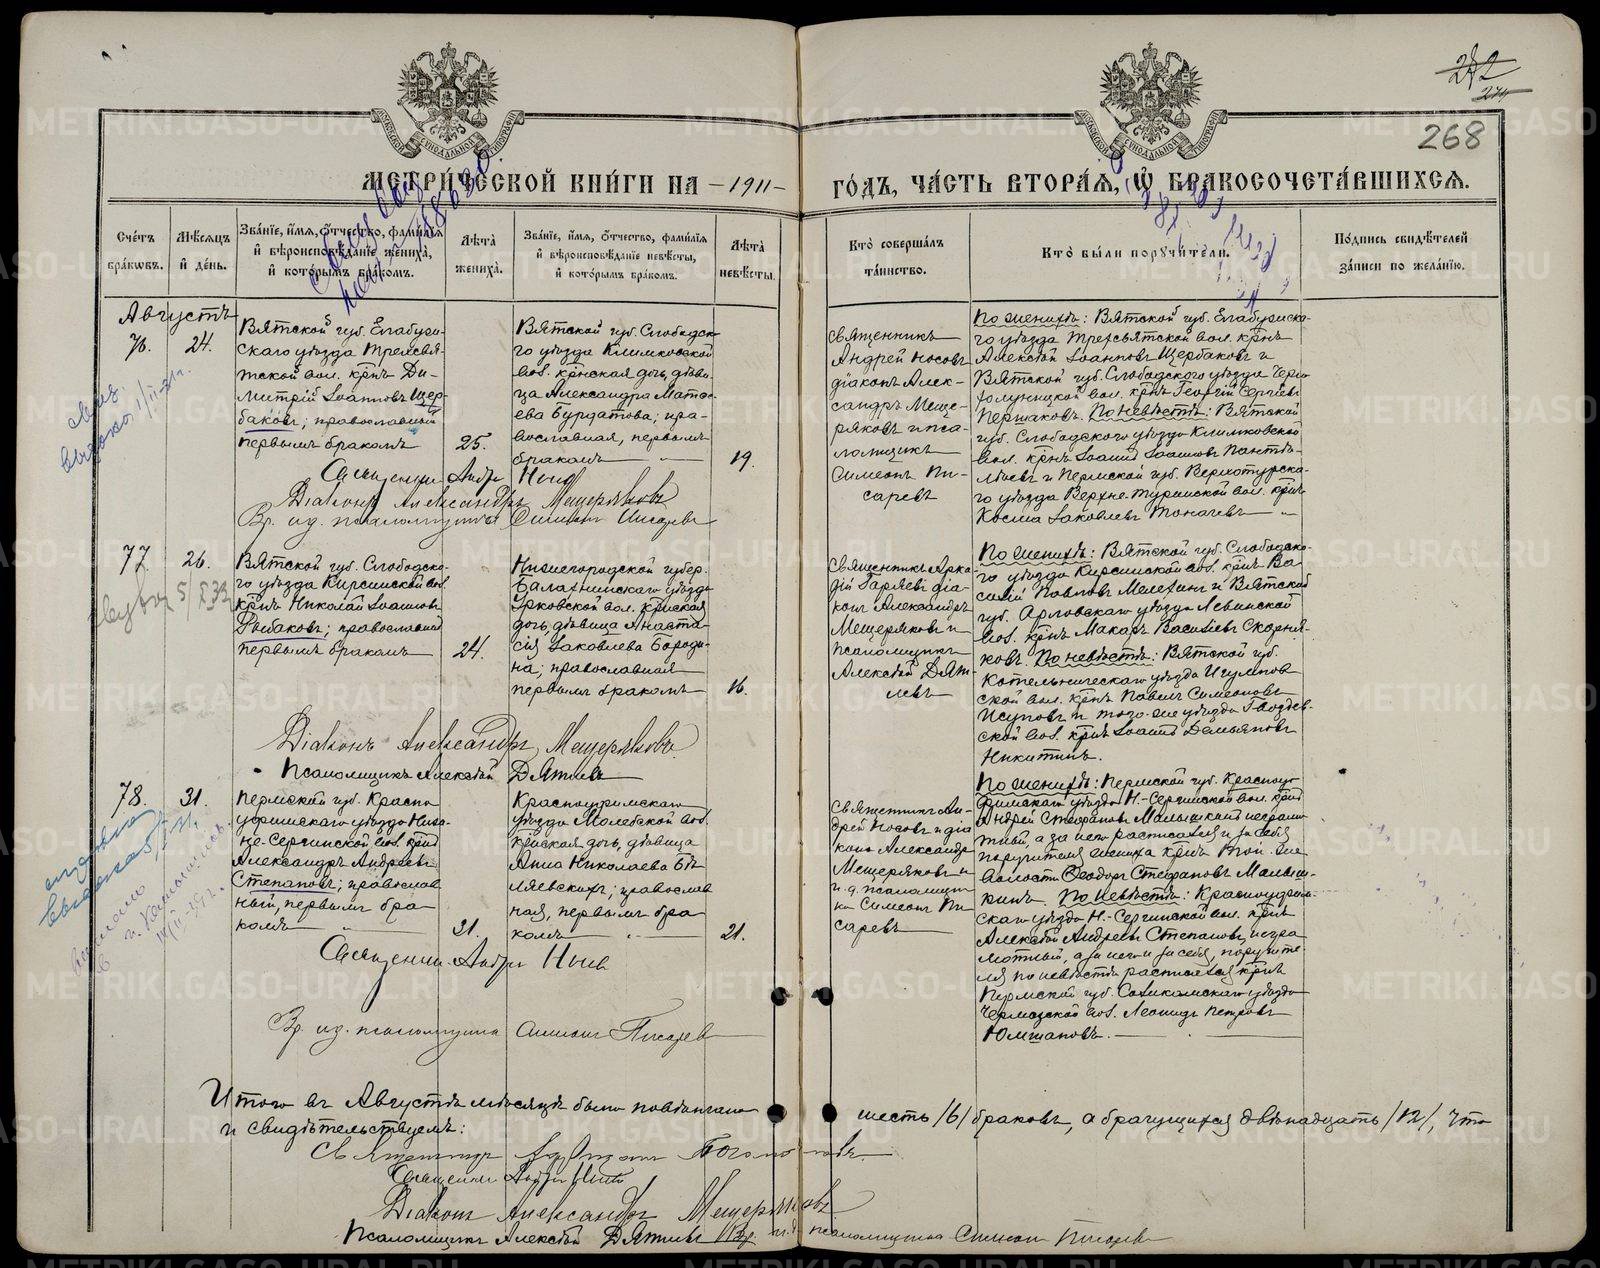 268
МЕТРИЧЕСКОЙ КНИГИ НА -1911- ГОДЪ, ЧАСТЬ ВТОРАЯ, Ѡ БРАКОСОЧЕТАВШИХСЯ.
Счетъ браковъ.
Мѣсяцъ и день.
Званіе, имя, отчество, фамилія
и вѣроисповѣданіе жениха,
и которымъ бракомъ.
Лѣта
жениха.
Званіе, имя, отчество, фамилія
и вѣроисповѣданіе невѣсты,
и которымъ бракомъ.
Лѣта
невѣсты.
Кто совершалъ
таинство.
Кто были поручители.
Подпись свидѣтелей
записи по желанію.
Августъ
76.
24.
Вятской губ. Елабуж-
скаго уѣзда Трехсвя-
тской вол. крнъ Ди-
митрій Іоанновъ Щер-
баковъ; православный
первымъ бракомъ
25.
Вятской губ. Слободска-
го уѣзда Климковской
вол. крнская дочь, дѣви-
ца Александра Матѳ-
ева Бурдатова; пра-
вославная, первымъ
бракомъ
19.
Священникъ
Андрей Носовъ
діаконъ Алек-
сандръ Меще-
ряковъ и пса-
ломщикъ
Симеонъ Пи-
саревъ
По женихѣ: Вятской губ. Елабужска-
го уѣзда Трехсвятской вол. крнъ
Алексѣй Іоанновъ Щербаковъ и
Вятской губ. Слободского уѣзда Черно
холуницкой вол. крнъ Георгій Сергѣевъ
Першаковъ. По невѣстѣ: Вятской
губ. Слободского уѣзда Климковской
вол. крнъ Іоаннъ Іоанновъ Пантѣ-
лѣевъ и Пермской губ. Верхотурска-
го уѣзда Верхне-Туринской вол. крнъ
Косма Іаковлевъ Топачевъ
Священникъ Андрей Носовъ
Діаконъ Александръ Мещеряковъ
Вр. ид. псаломщика Симеонъ Писаревъ
77.
26.
Вятской губ. Слободска-
го уѣзда Кирсинской вол.
крнъ Николай Іоанновъ
Рыбаковъ; православный
первымъ бракомъ
24.
Нижегородской губер.
Балахнинскаго уѣзда
крнская
дочь, дѣвица Анаста-
сія Іаковлева Бороди-
на; православная
первымъ бракомъ
16.
Священникъ Арка-
дій Гаряевъ діа-
конъ Александръ
Мещеряковъ и
псаломщикъ
Алексѣй Дят-
левъ
По женихѣ: Вятской губ. Слободска-
го уѣзда Кирсинской вол. крнъ Ва-
силій Павловъ Мелехинъ и Вятской
губ. Орловскаго уѣзда Левинской
вол. крнъ Макаръ Васильевъ Скорня-
ковъ. По невѣстѣ: Вятской губ.
Котельническаго уѣзда Игумнов
ской вол. крнъ Павелъ Симеоновъ
Исуповъ и того-же уѣзда Гвоздев-
ской вол. крнъ Іоаннъ Демьяновъ
Никитинъ.
Діаконъ Александръ Мещеряковъ.
Псаломщикъ Алексѣй Дятлевъ
78.
31.
Пермской губ. Красно
уфимскаго уѣзда Ниж-
не-Сергинской вол. крнъ
Александръ Андреевъ
Степановъ; православ
ный, первымъ бра
комъ
21.
Красноуфимскаго
уѣзда Молебской вол.
крнская дочь, дѣвица
Анна Николаева Бѣ
ляевскихъ; православ
ная, первымъ бра
комъ
21.
Священникъ Ан-
дрей Носовъ и діа
конъ Александръ
Мещеряковъ и
и.д. псаломщи-
ка Симеонъ Пи
саревъ
По женихѣ: Пермской губ. Красноу
фимскаго уѣзда Н.-Сергинской вол. крнъ
Андрей Стефановъ Малышкинъ неграмо
тный, а за него расписался и за себя
поручителя жениха крнъ той-же
волости Ѳеодоръ Стефановъ Малыш-
кинъ. По невѣстѣ: Красноуфим-
скаго уѣзда Н.-Сергинской вол. крнъ
Алексѣй Андреевъ Степановъ, негра
мотный, а за него и за себя, поручите
ля по невѣстѣ расписался крнъ
Пермской губ. Соликамскаго уѣзда
Чермозской вол. Леонидъ Петровъ
Юмшановъ.
Священникъ Андрей Носовъ
Вр. ид. псаломщика Симеонъ Писаревъ
Итого въ Августѣ мѣсяцѣ было повѣнчано шесть /6/ браковъ, а брачущихся двѣнадцать /12/, что
и свидѣтельствуемъ:
Священникъ
Священникъ Андрей Носовъ
Діаконъ Александръ Мещеряковъ
Псаломщикъ Алексѣй Дятлевъ Вр. и.д. псаломщика Симеонъ Писаревъ
METRIKI.GASO-URAL.RU